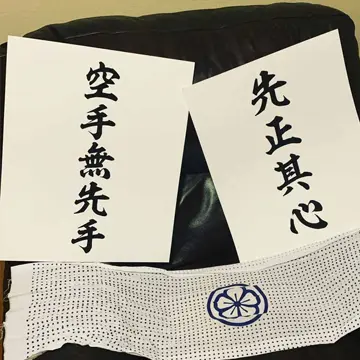 空手無先手
先正其心